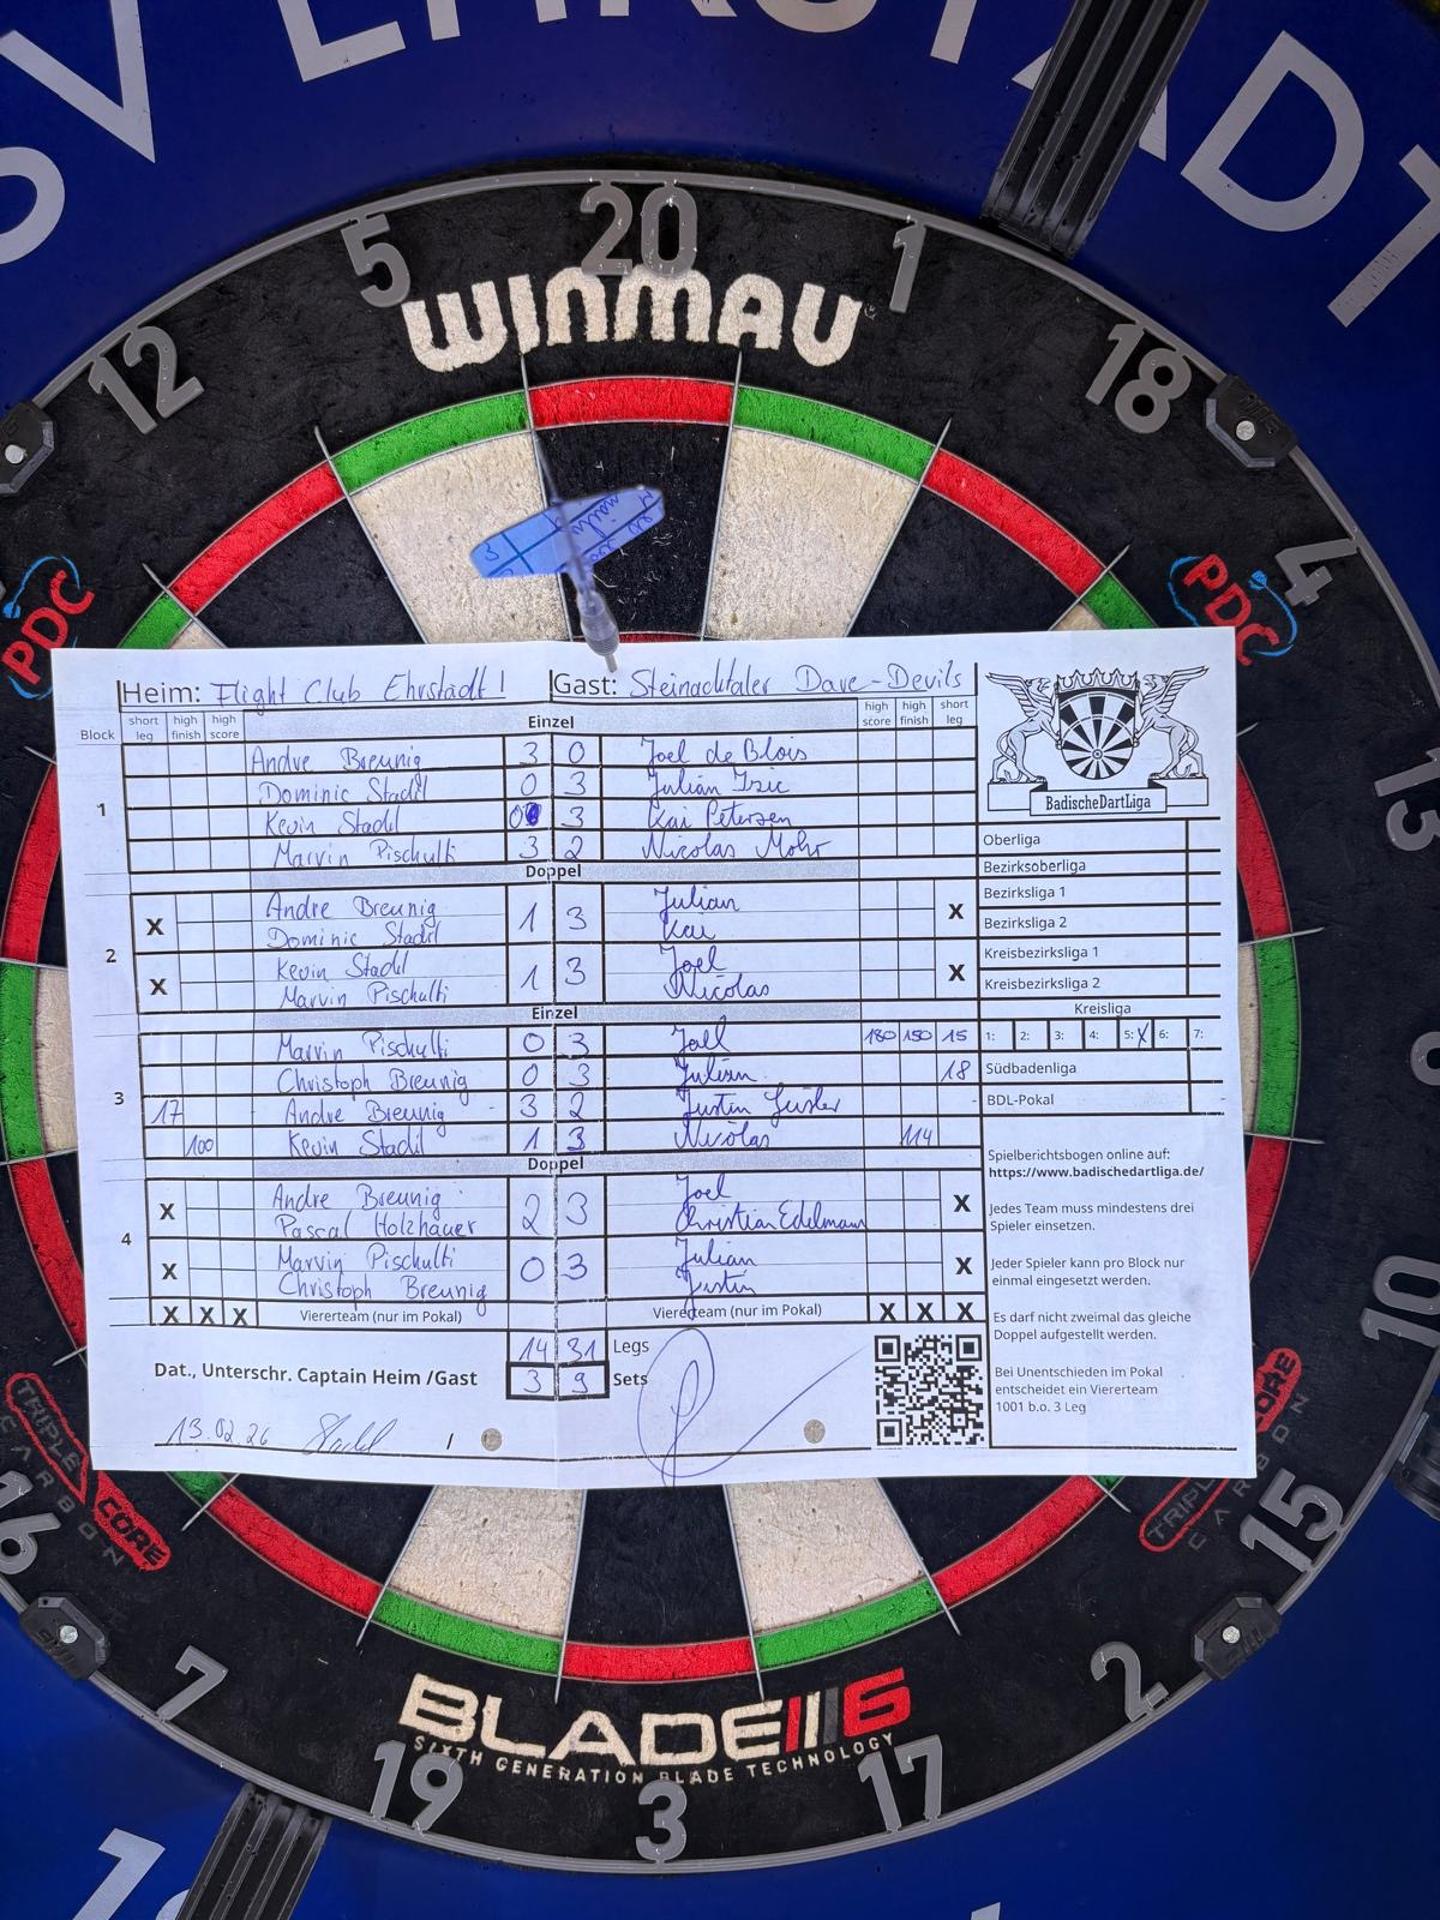 SV EHRSTADT
5 20 1
WINMAU
12 18
4
PDC PDC
13
Heim: Flight Club Ehrstädt 1 Gast: Steinachtaler Dare-Devils
Block short leg high finish high score Einzel high score high finish short leg
1
Andre Breunig 3 0 Joel de Blois
Dominic Stadil 0 3 Julian Izic
Kevin Stadil 0 3 Kai Petersen
Marvin Pischulti 3 2 Nicolas Mohr
Doppel
2
X Andre Breunig 1 3 Julian X
Dominic Stadil Kai
X Kevin Stadil 1 3 Joel X
Marvin Pischulti Nicolas
Einzel
3
Marvin Pischulti 0 3 Joel 180 150 15
Christoph Breunig 0 3 Julian 18
17 Andre Breunig 3 2 Justin
100 Kevin Stadil 1 3 Nicolas 114
Doppel
4
X Andre Breunig 2 3 Joel X
Pascal Holzhauer Christian Edelmann
X Marvin Pischulti 0 3 Julian X
Christoph Breunig Justin
X X X Viererteam (nur im Pokal) Viererteam (nur im Pokal) X X X
14 31 Legs
Dat., Unterschr. Captain Heim /Gast 3 9 Sets
13.02.26 Stadil /
BadischeDartLiga
Oberliga
Bezirksoberliga
Bezirksliga 1
Bezirksliga 2
Kreisbezirksliga 1
Kreisbezirksliga 2
Kreisliga
1: 2: 3: 4: 5: X 6: 7:
Südbadenliga
BDL-Pokal
Spielberichtsbogen online auf:
https://www.badischedartliga.de/
Jedes Team muss mindestens drei
Spieler einsetzen.
Jeder Spieler kann pro Block nur
einmal eingesetzt werden.
Es darf nicht zweimal das gleiche
Doppel aufgestellt werden.
Bei Unentschieden im Pokal
entscheidet ein Viererteam
1001 b.o. 3 Leg
10
TRIPLE CORE
CARBON
TRIPLE CORE
CARBON
16 15
7 2
BLADE 6
SIXTH GENERATION BLADE TECHNOLOGY
19 3 17